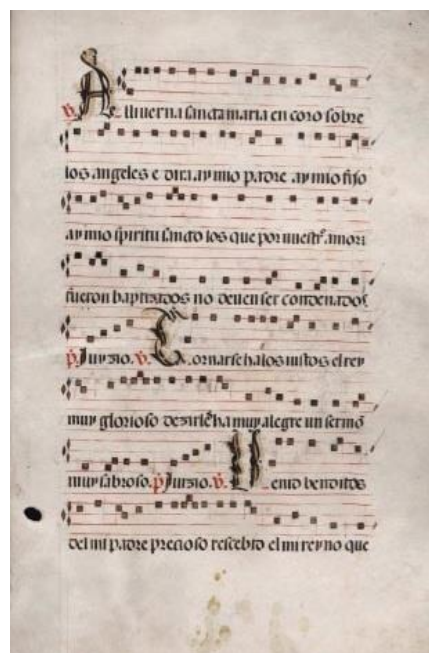 Alli uerna sancta maria en coro sobre
los angeles e dira. ay mio padre ay mio fijo
ay mio spiritu sancto los que por nuestro amor
fueron baptizados no deuen ser condenados
Juyzio. Tornarseha los iustos el rey
muy glorioso dezirleha muy alegre un sermo
muy sabroso. Juyzio. Uenid benditos
del mi padre precioso rescebid el mi reyno que